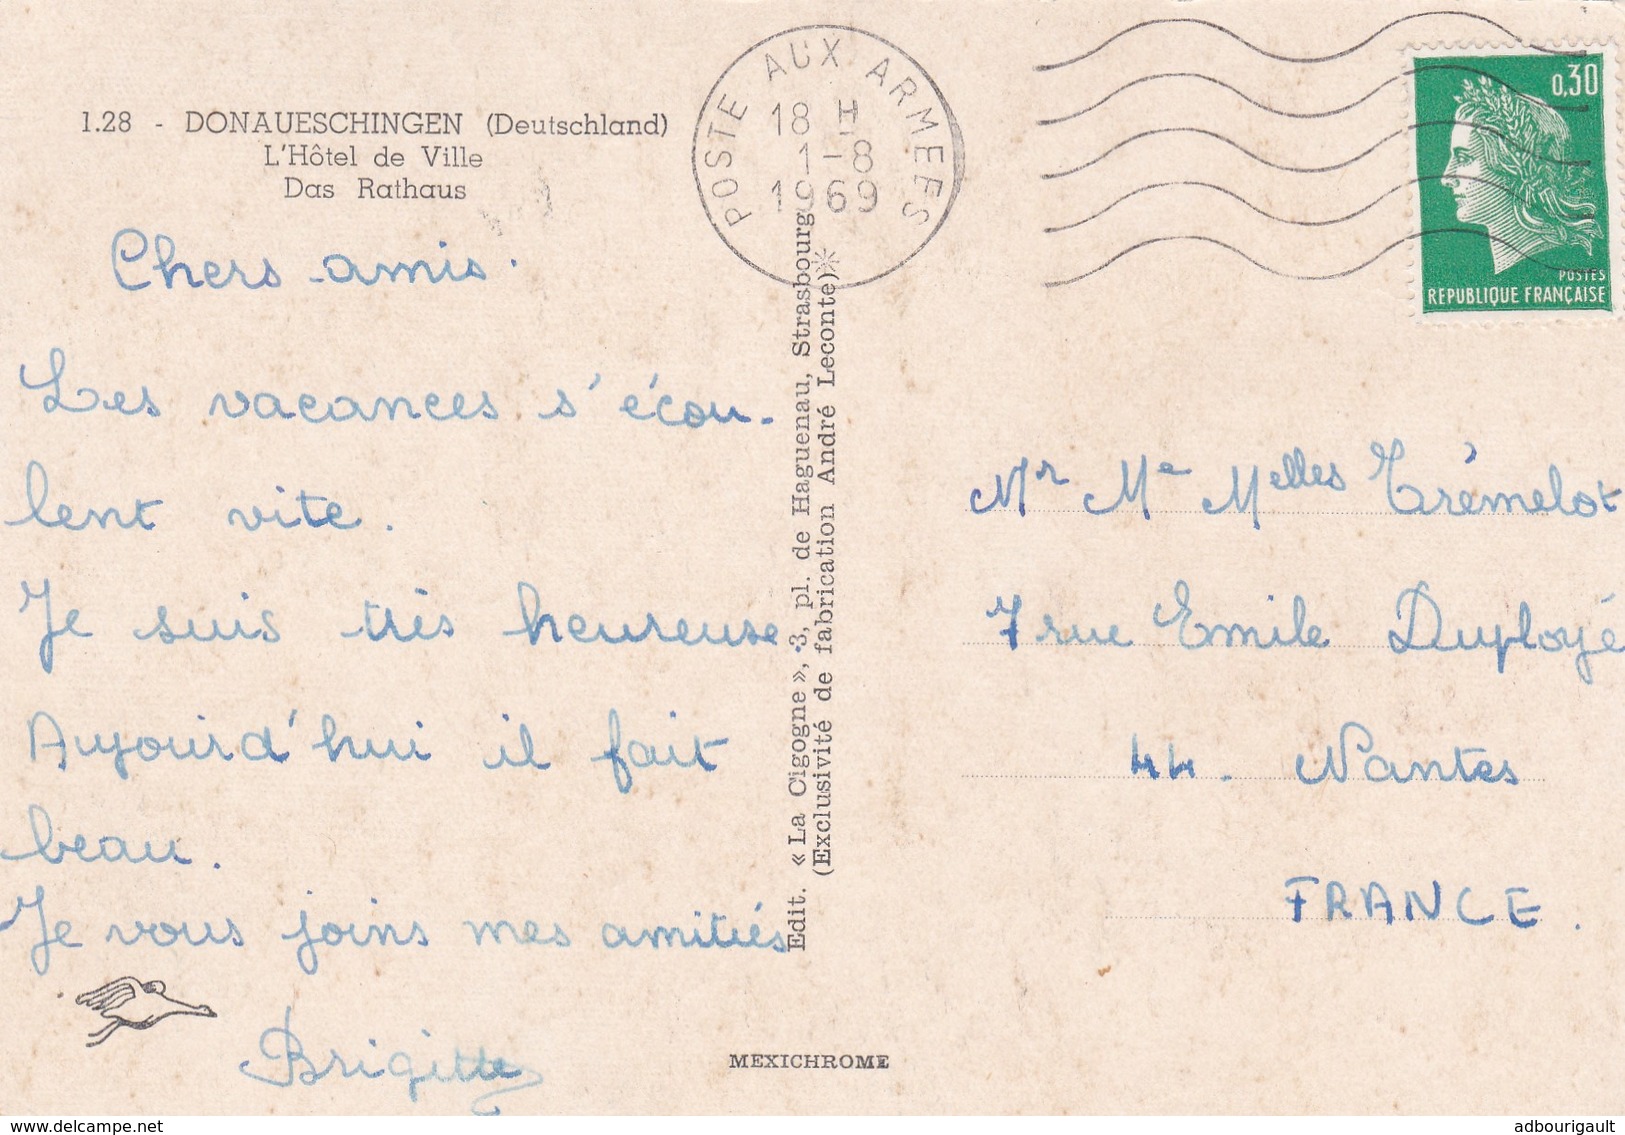 1.28 - DONAUESCHINGEN (Deutschland)
L'Hôtel de Ville
Das Rathaus
Chers amis.
Les vacances s'écou-
lent vite.
Je suis très heureuse
Aujourd'hui il fait
beau.
Je vous joins mes amitiés
Brigitte
POSTE AUX ARMEES
18 H
1-8
1969
0,30
POSTES
REPUBLIQUE FRANÇAISE
Edit. « La Cigogne », 3, pl. de Haguenau, Strasbourg
(Exclusivité de fabrication André Leconte)
Mr Me Melles Trémelot
7 rue Emile Duployé
44. Nantes
FRANCE.
MEXICHROME
www.delcampe.net
adbourigault